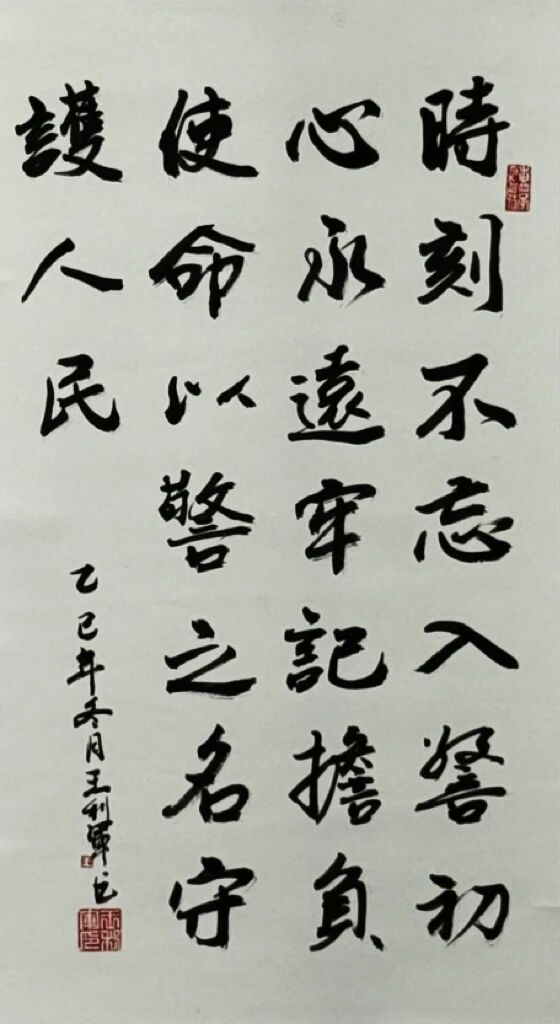 時刻不忘入警初
心永遠牢記擔負
使命以警之名守
護人民
乙巳年冬月王利軍書